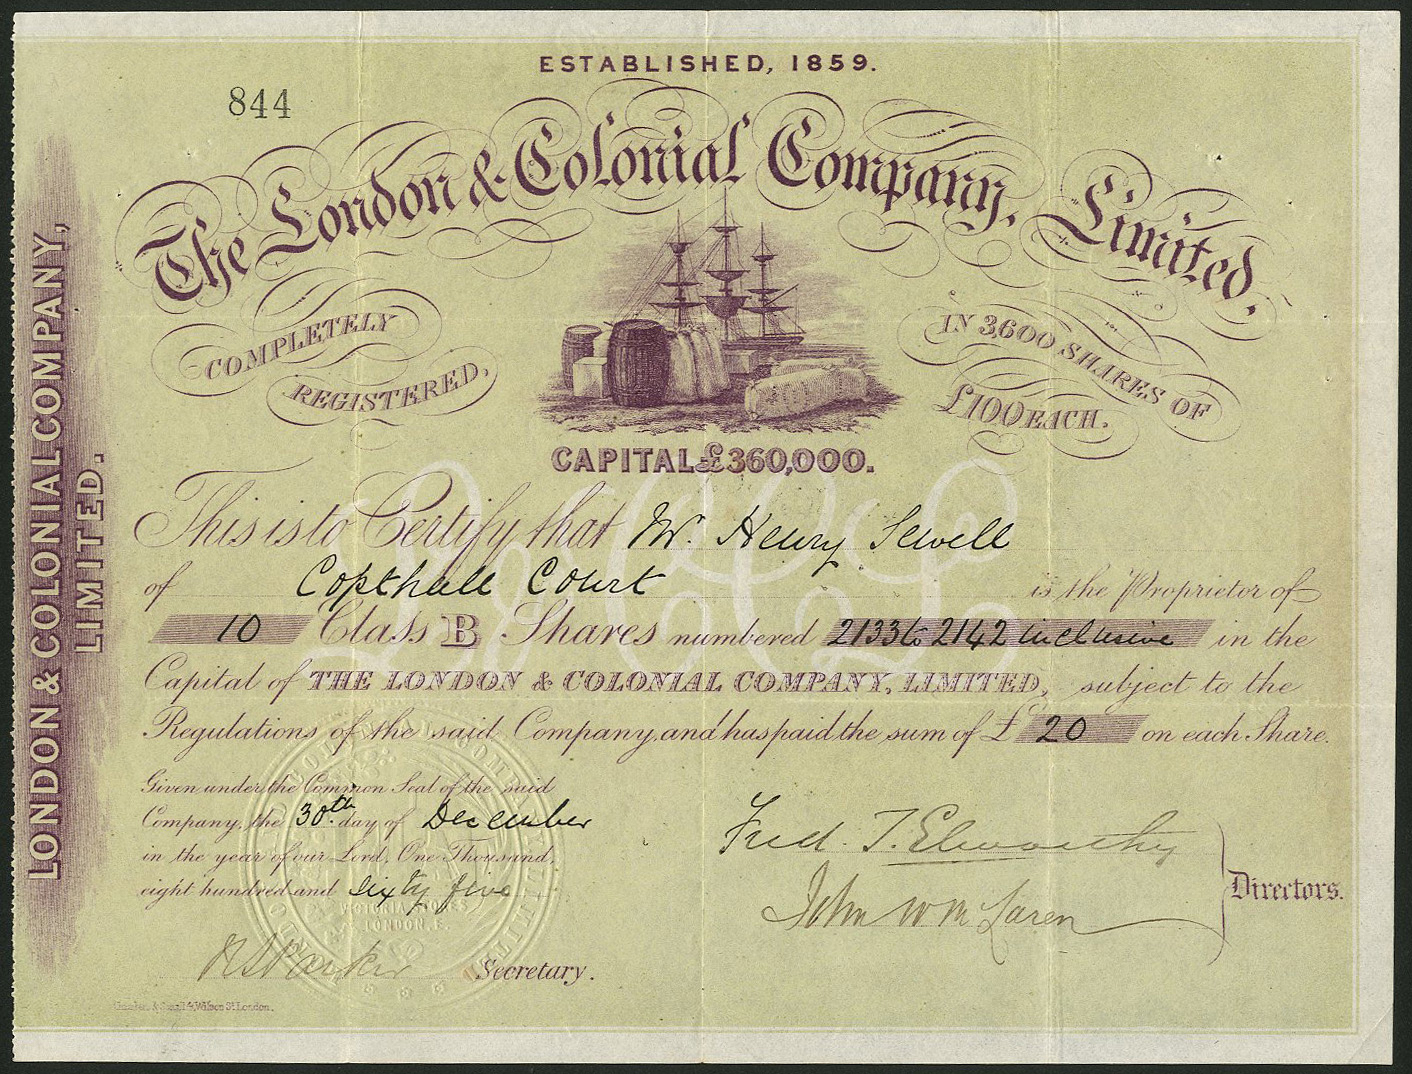 ESTABLISHED, 1859.
844
The London & Colonial Company, Limited.
COMPLETELY
REGISTERED.
IN 3,600 SHARES OF
£100 EACH.
CAPITAL £360,000.
This is to Certify that Mr. Henry Sewell
of Copthall Court is the Proprietor of
10 Class B Shares numbered 2133 to 2142 inclusive in the
Capital of THE LONDON & COLONIAL COMPANY, LIMITED, subject to the
Regulations of the said Company, and has paid the sum of £ 20 on each Share.
Given under the Common Seal of the said
Company, the 30th. day of December
in the year of our Lord, One Thousand,
eight hundred and sixty five
Fred. T. Elworthy
John Wm Laren
Directors.
Parker Secretary.
& Wilson St London.
LONDON & COLONIAL COMPANY,
LIMITED.
LONDON, E.